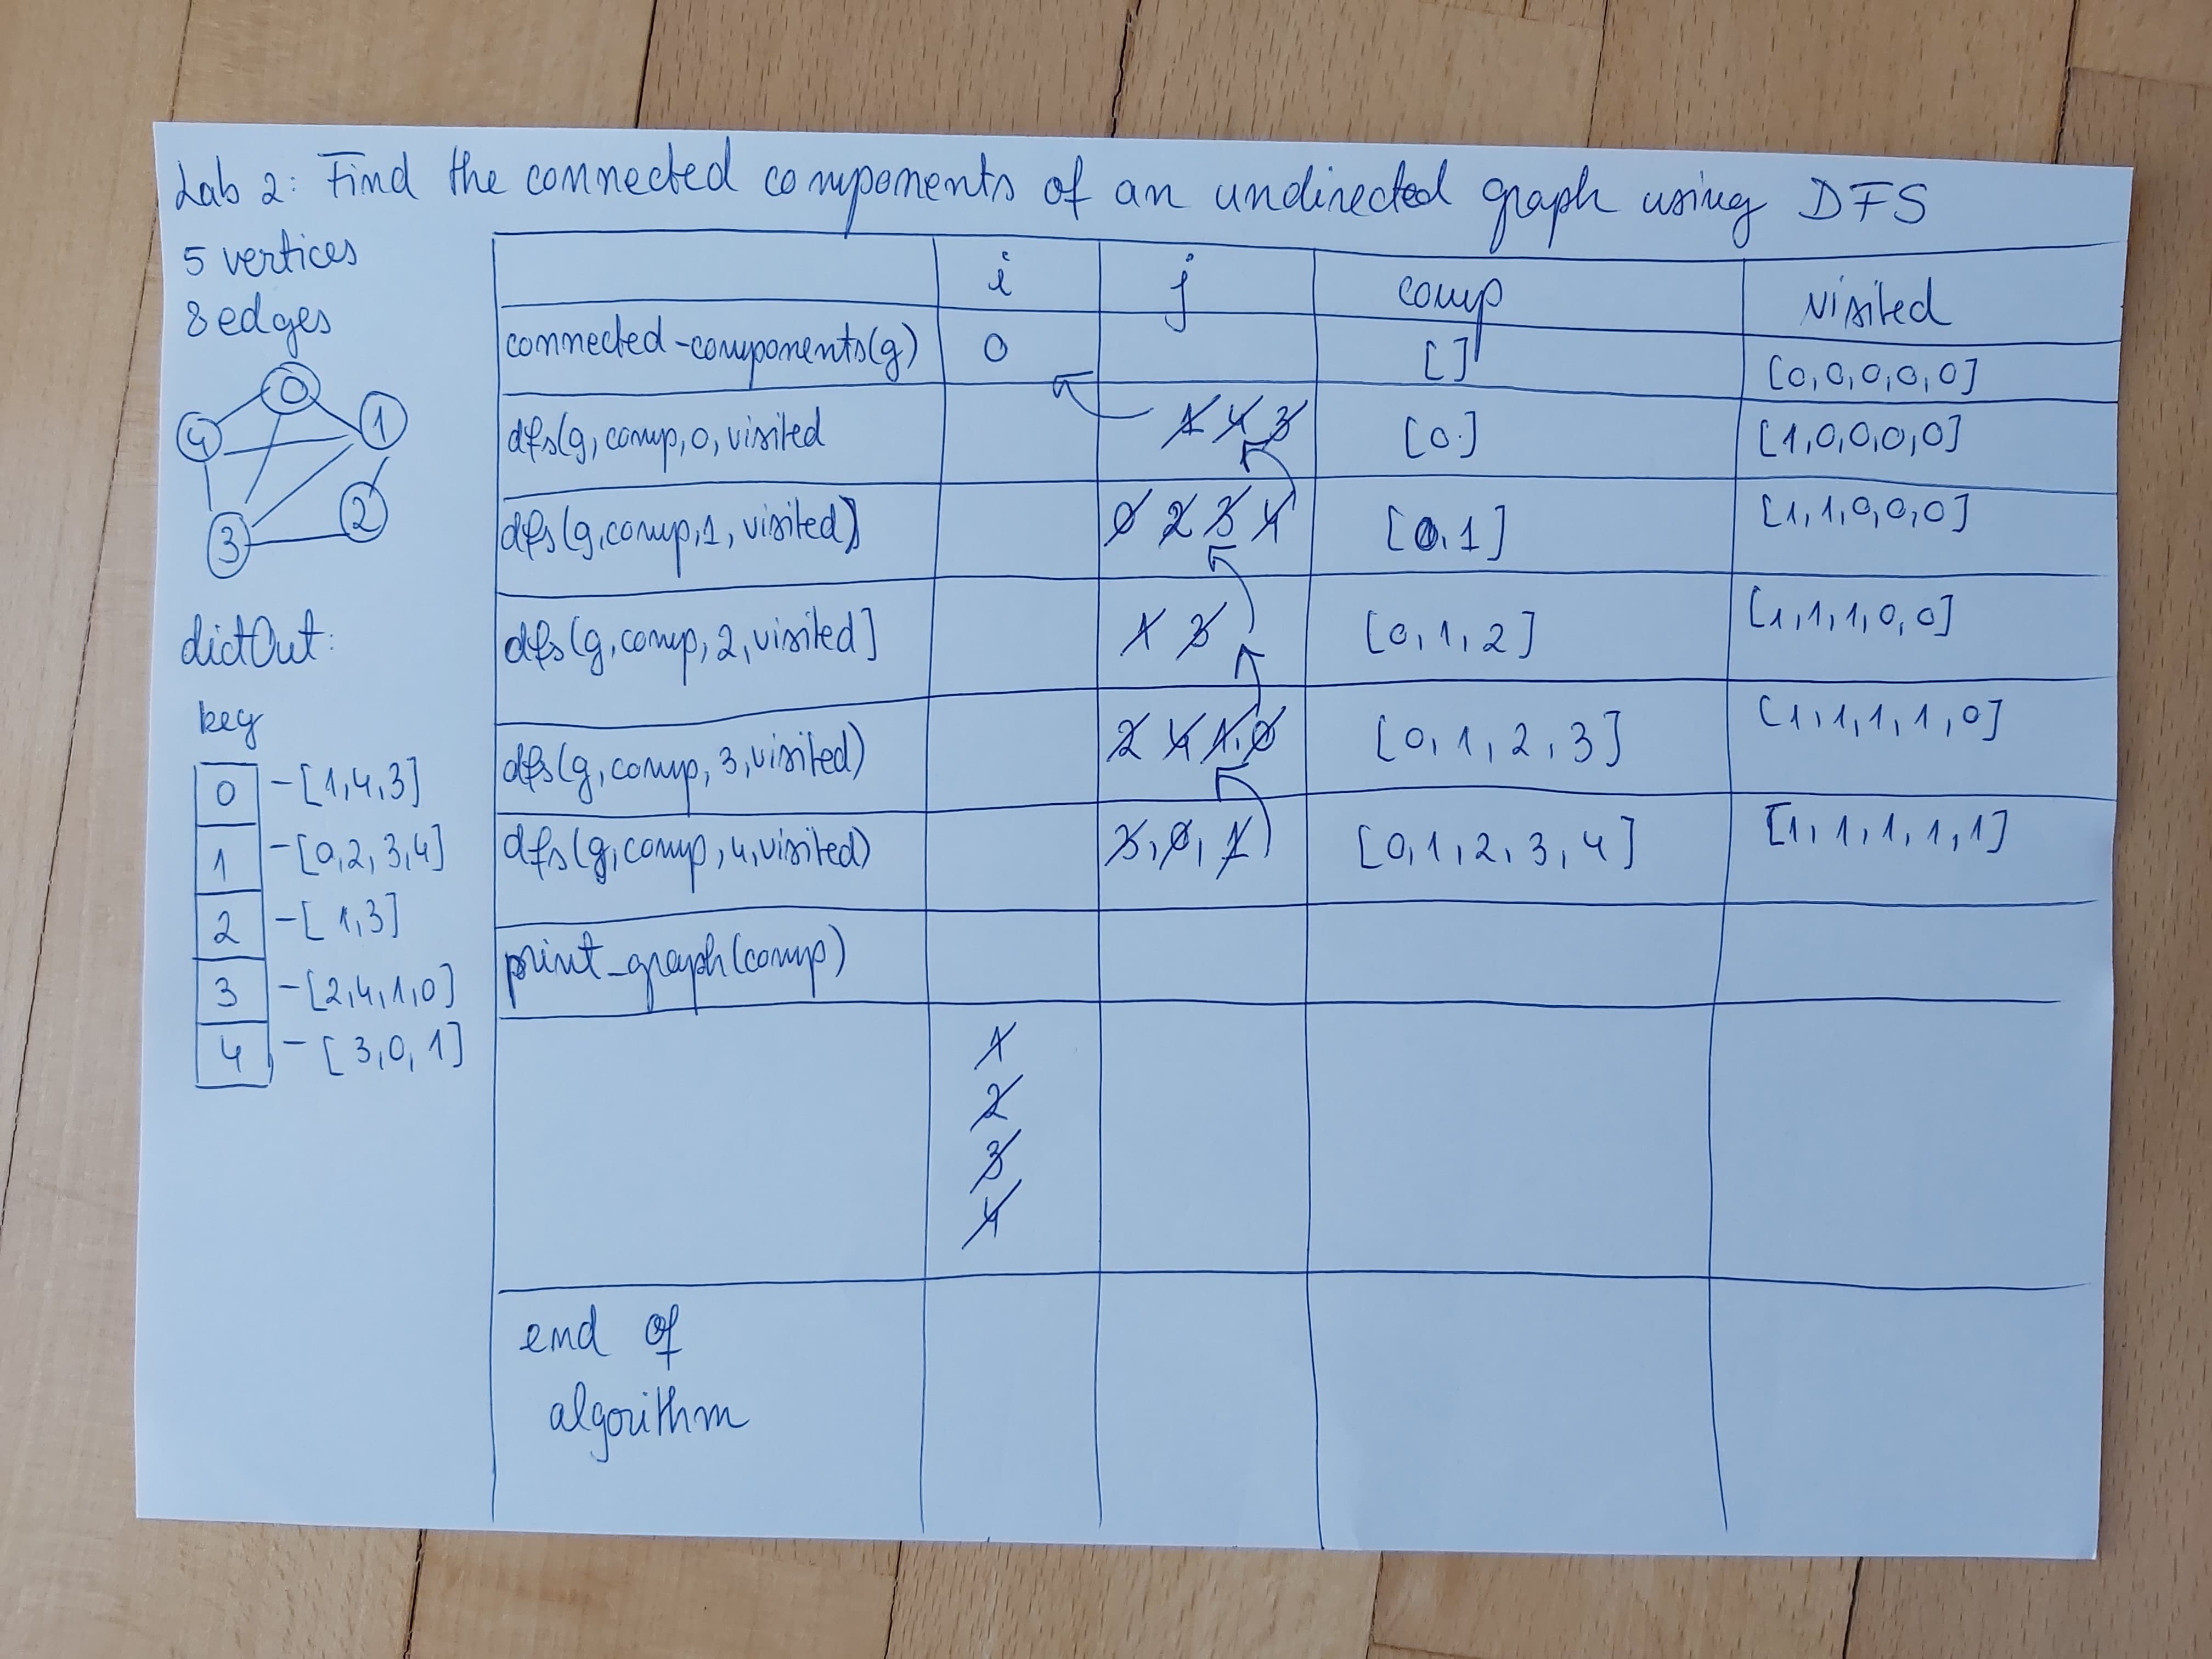 Lab 2: Find the connected components of an undirected graph using DFS
5 vertices
8 edges
0
4
1
2
3
dictOut:
key
0 -[1,4,3]
1 -[0,2,3,4]
2 -[1,3]
3 -[2,4,1,0]
4 -[3,0,1]
i j comp visited
connected-components(g) 0 [] [0,0,0,0,0]
dfs(g,comp,0,visited 1 4 3 [0.] [1,0,0,0,0]
dfs(g,comp,1,visited) 0 2 3 4 [0,1] [1,1,0,0,0]
dfs(g,comp,2,visited] 1 3 [0,1,2] [1,1,1,0,0]
dfs(g,comp,3,visited) 2 4 1,0 [0,1,2,3] [1,1,1,1,0]
dfs(g,comp,4,visited) 3,0,1 [0,1,2,3,4] [1,1,1,1,1]
print_graph(comp)
1
2
3
4
end of
algorithm